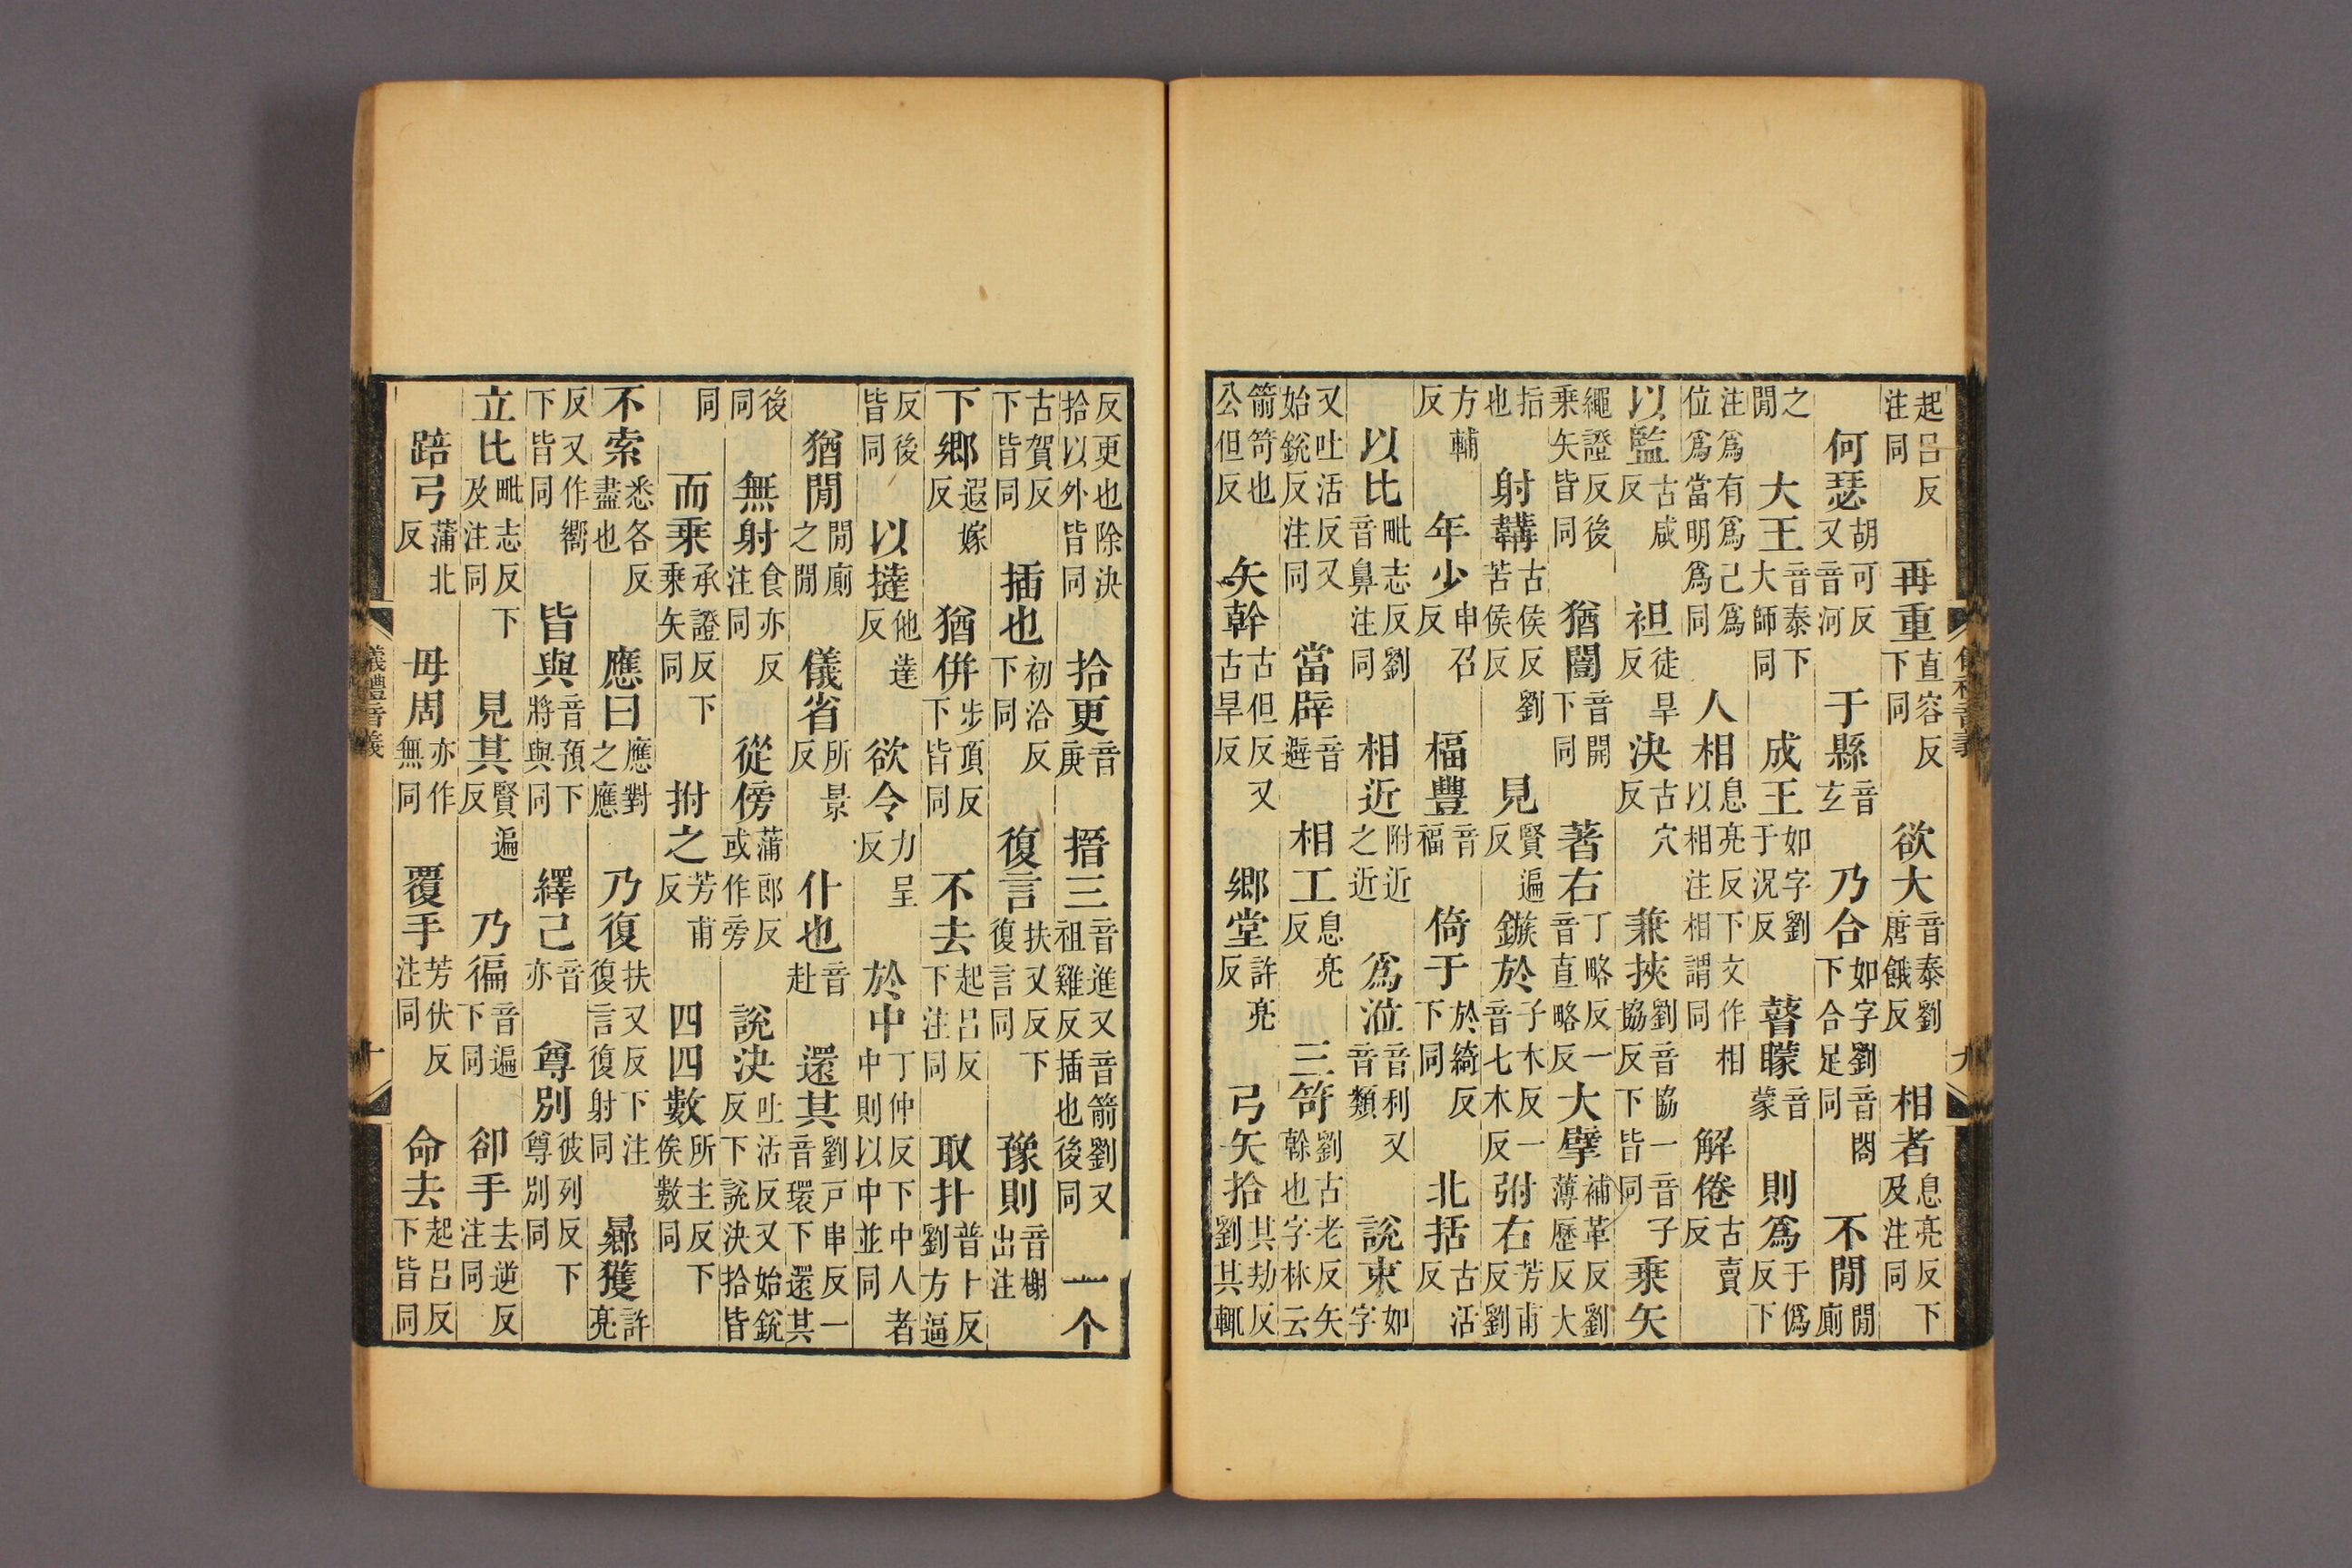 儀禮音義 九
起呂反注同 再重直容反下同 欲大音泰劉唐餓反 相者息亮反下及注同
何瑟胡可反又音河 于縣音玄 乃合如字劉音閤下合足同 不閒閒廁
之閒 大王音泰下大師同 成王如字劉于況反 瞽矇音蒙 則爲于僞反下
注爲有爲己爲位爲當明爲同 人相息亮反下文作相以相注相謂同 解倦古賣反
以監古咸反 袒徒旱反 決古穴反 兼挾劉音協一音子協反下皆同 乘矢
繩證反後乘矢皆同 猶闓音開下同 著右丁略反一音直略反 大擘補革反劉薄歷反大
指也 射韝古侯反劉苦侯反 見賢遍反 鏃於子木反一音七木反 弣右芳甫反劉
方輔反 年少申召反 楅豐音福 倚于於綺反下同 北括古活反
以比毗志反劉音鼻注同 相近附近之近 爲涖音利又音類 說束如字
又吐活反又始銳反注同 當辟音避 相工息亮反 三笴劉古老反矢幹也字林云
箭笴也公但反 矢幹古但反又古旱反 鄉堂許亮反 弓矢拾其劫反劉其輒
反更也除決拾以外皆同 拾更音庚 搢三音進又音箭劉又祖雞反插也後同 一个
古賀反下皆同 插也初洽反下同 復言扶又反下復言同 豫則音榭出注
下鄉遐嫁反 猶併步頂反下皆同 不去起呂反下注同 取扑普卜反劉方逼
反後皆同 以撻他達反 欲令力呈反 於中丁仲反下中人者中則以中並同
猶閒閒廁之閒 儀省所景反 仆也音赴 還其劉戶串反一音環下還其
後同 無射食亦反注同 從傍蒲郎反或作旁 說決吐活反又始銳反下說決拾皆
同 而乘承證反下乘矢同 拊之芳甫反 四四數所主反下俟數同
不索悉各反盡也 應曰應對之應 乃復扶又反下注復言復射同 曏獲許亮
反又作嚮下皆同 皆與音預下將與同 繹己音亦 尊別彼列反下尊別同
立比毗志反下及注同 見其賢遍反 乃徧音遍下同 卻手去逆反注同
踣弓蒲北反 毋周亦作無同 覆手芳伏反注同 命去起呂反下皆同
儀禮音義 十